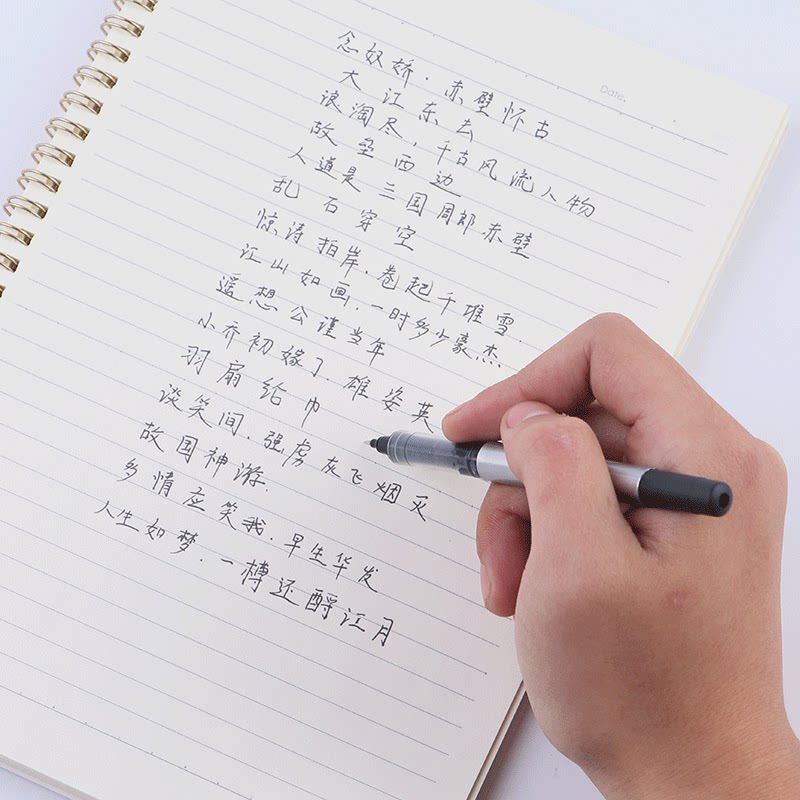 Date.
念奴娇·赤壁怀古
大江东去
浪淘尽，千古风流人物
故垒西边
人道是三国周郎赤壁
乱石穿空
惊涛拍岸，卷起千堆雪．
江山如画，一时多少豪杰．
遥想公谨当年
小乔初嫁了．雄姿英
羽扇纶巾
谈笑间，强虏灰飞烟灭
故国神游．
多情应笑我．早生华发
人生如梦．一樽还酹江月